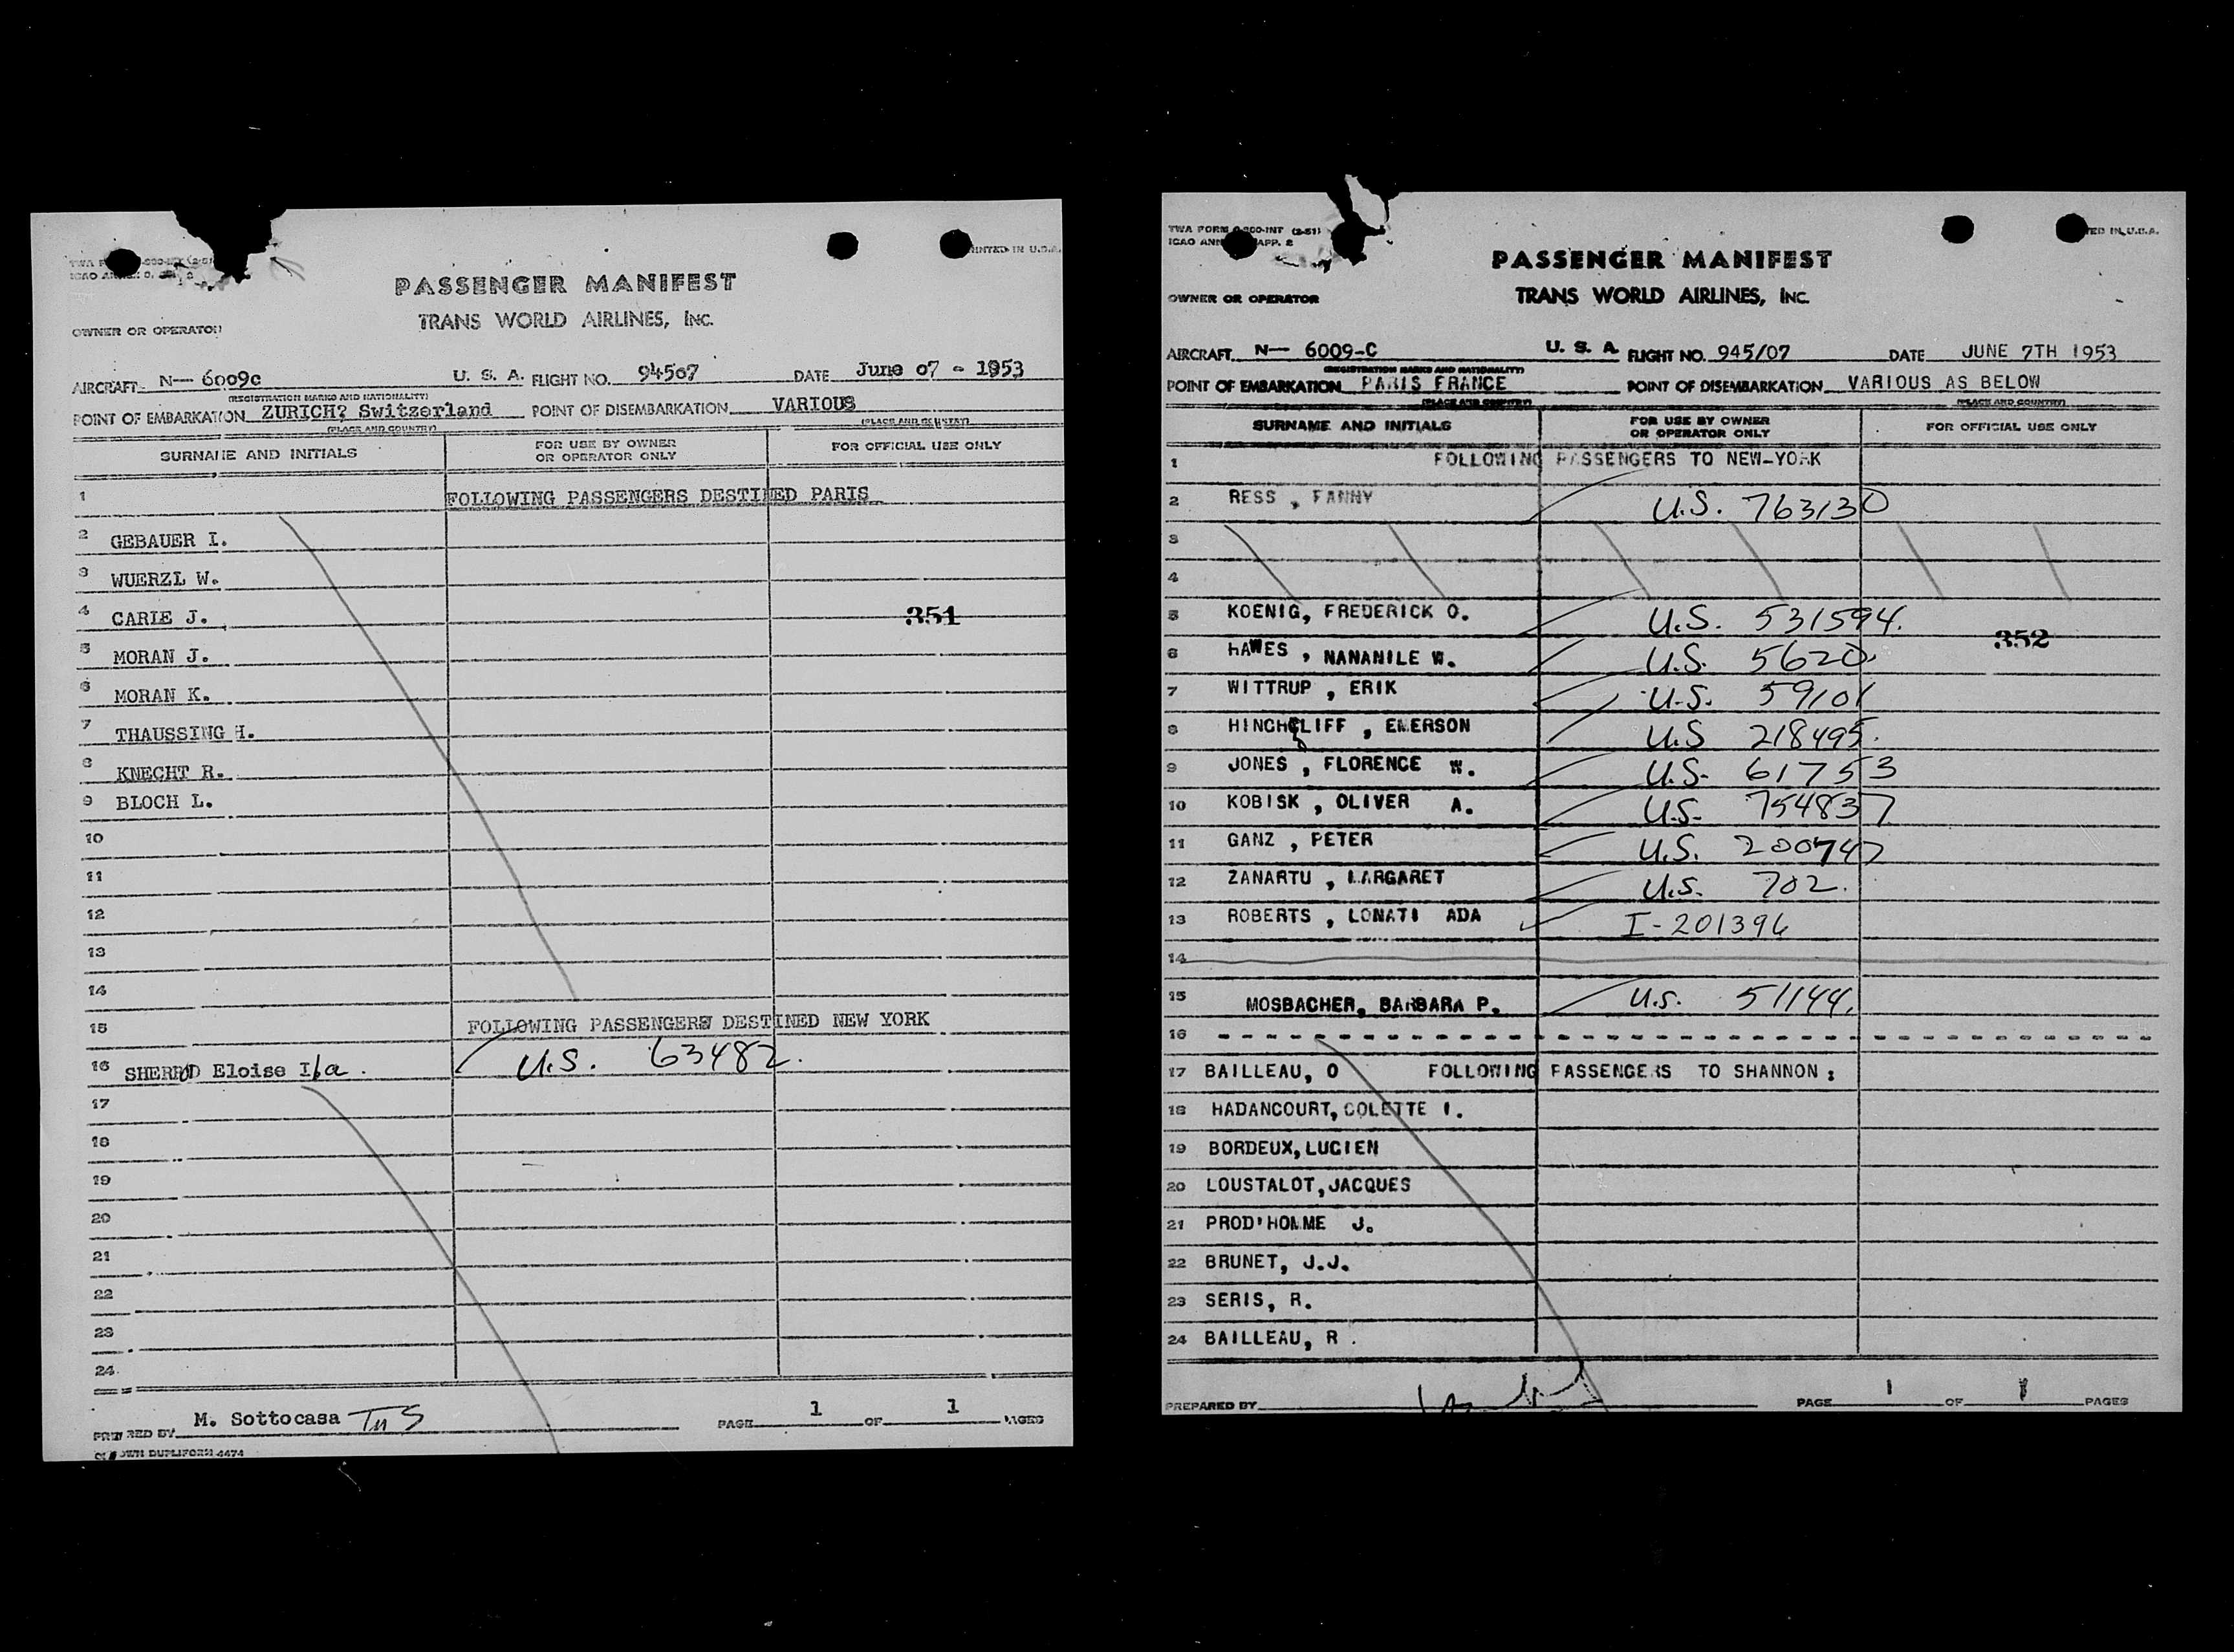 PASSENGER MANIFEST
TRANS WORLD AIRLINES, INC.
PRINTED IN U.S.A.
OWNER OR OPERATOR
AIRCRAFT N— 6009c U. S. A. FLIGHT NO. 94507 DATE June 07 - 1953
(REGISTRATION MARKS AND NATIONALITY)
POINT OF EMBARKATION ZURICH? Switzerland POINT OF DISEMBARKATION VARIOUS
(PLACE AND COUNTRY) (PLACE AND COUNTRY)
SURNAME AND INITIALS FOR USE BY OWNER OR OPERATOR ONLY FOR OFFICIAL USE ONLY
1 FOLLOWING PASSENGERS DESTINED PARIS
2 GEBAUER I.
3 WUERZL W.
4 CARIE J. 351
5 MORAN J.
6 MORAN K.
7 THAUSSING H.
8 KNECHT R.
9 BLOCH L.
10
11
12
13
14
15 FOLLOWING PASSENGERS DESTINED NEW YORK
16 SHERROD Eloise Iba. U.S. 63482.
17
18
19
20
21
22
23
24
PREPARED BY M. Sottocasa PAGE 1 OF 1 PAGES
DUPLIFORM 4474
TWA FORM (2-51)
ICAO APP. 2
ED IN U.S.A.
PASSENGER MANIFEST
TRANS WORLD AIRLINES, INC.
OWNER OR OPERATOR
AIRCRAFT N— 6009-C U. S. A. FLIGHT NO. 945/07 DATE JUNE 7TH 1953
(REGISTRATION MARKS AND NATIONALITY)
POINT OF EMBARKATION PARIS FRANCE POINT OF DISEMBARKATION VARIOUS AS BELOW
(PLACE AND COUNTRY) (PLACE AND COUNTRY)
SURNAME AND INITIALS FOR USE BY OWNER OR OPERATOR ONLY FOR OFFICIAL USE ONLY
1 FOLLOWING PASSENGERS TO NEW-YORK
2 RESS , FANNY U.S. 763130
3
4
5 KOENIG, FREDERICK O. U.S. 531594.
352
6 HAWES , NANANILE W. U.S. 5620.
7 WITTRUP , ERIK U.S. 59101
8 HINCHCLIFF , EMERSON U.S 218495.
9 JONES , FLORENCE W. U.S. 61753
10 KOBISK , OLIVER A. U.S. 754837
11 GANZ , PETER U.S. 200747
12 ZANARTU , MARGARET U.S. 702.
13 ROBERTS , LONATI ADA I-201396
14
15 MOSBACHER, BARBARA P. U.S. 51144.
16
17 BAILLEAU, O FOLLOWING PASSENGERS TO SHANNON :
18 HADANCOURT, COLETTE I.
19 BORDEUX, LUCIEN
20 LOUSTALOT, JACQUES
21 PROD'HOMME J.
22 BRUNET, J.J.
23 SERIS, R.
24 BAILLEAU, R .
PREPARED BY PAGE 1 OF 1 PAGES